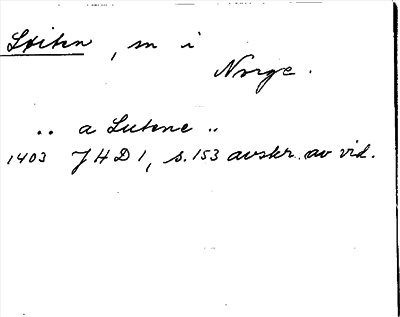 , sn i
Norge.
.. a Lutene ..
1403 JHD 1, s. 153 avskr. av vid.